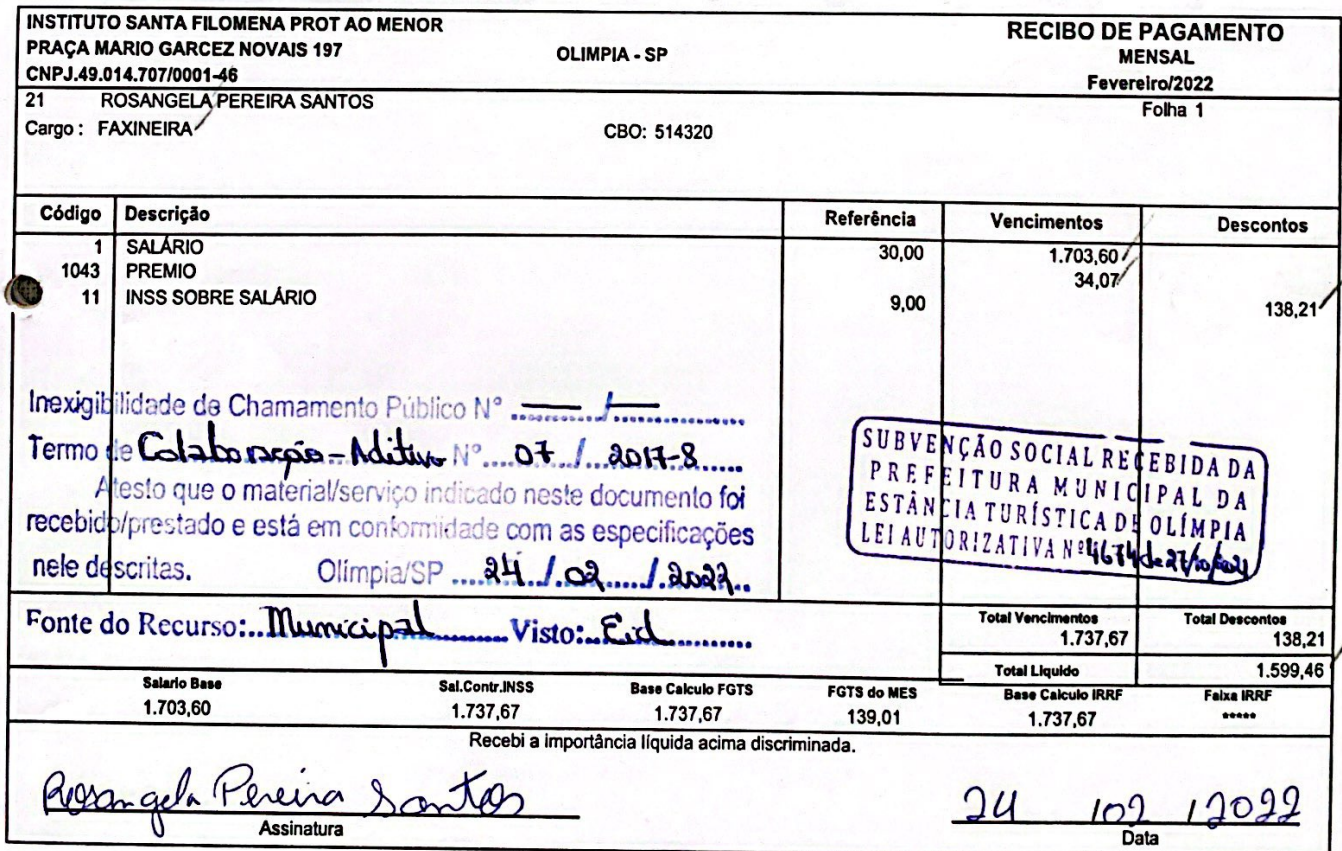 INSTITUTO SANTA FILOMENA PROT AO MENOR
PRAÇA MARIO GARCEZ NOVAIS 197
CNPJ.49.014.707/0001-46
OLIMPIA - SP
RECIBO DE PAGAMENTO
MENSAL
Fevereiro/2022
21 ROSANGELA PEREIRA SANTOS
Folha 1
Cargo : FAXINEIRA
CBO: 514320
Código Descrição Referência Vencimentos Descontos
1 SALÁRIO 30,00 1.703,60
1043 PREMIO 34,07
11 INSS SOBRE SALÁRIO 9,00 138,21
Inexigibilidade de Chamamento Público Nº — / —
Termo de Colaboração - Aditivo Nº 07 / 2017-8
Atesto que o material/serviço indicado neste documento foi
recebido/prestado e está em conformidade com as especificações
nele descritas. Olímpia/SP 24 / 02 / 2022
SUBVENÇÃO SOCIAL RECEBIDA DA
PREFEITURA MUNICIPAL DA
ESTÂNCIA TURÍSTICA DE OLÍMPIA
LEI AUTORIZATIVA Nº 4674 de 27/10/2021
Fonte do Recurso: Municipal Visto:
Total Vencimentos Total Descontos
1.737,67 138,21
Total Liquido 1.599,46
Salario Base Sal.Contr.INSS Base Calculo FGTS FGTS do MES Base Calculo IRRF Faixa IRRF
1.703,60 1.737,67 1.737,67 139,01 1.737,67 *****
Recebi a importância líquida acima discriminada.
Rosangela Pereira Santos
24 / 02 / 2022
Assinatura
Data